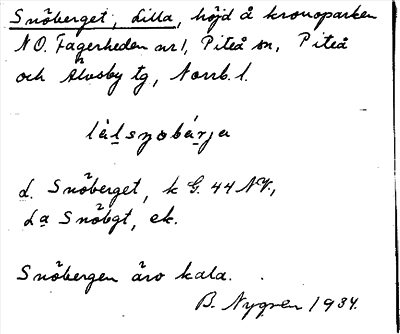 Snöberget, Lilla, höjd å kronoparken
NO. Fagerheden nr 1, Piteå sn, Piteå
och Älvsby tg, Norrb. l.
lạ̀lsnøbárja
L. Snöberget, k G. 44 NV.,
La Snöbgt, ek.
Snöbergen äro kala.
B. Nygren 1934.